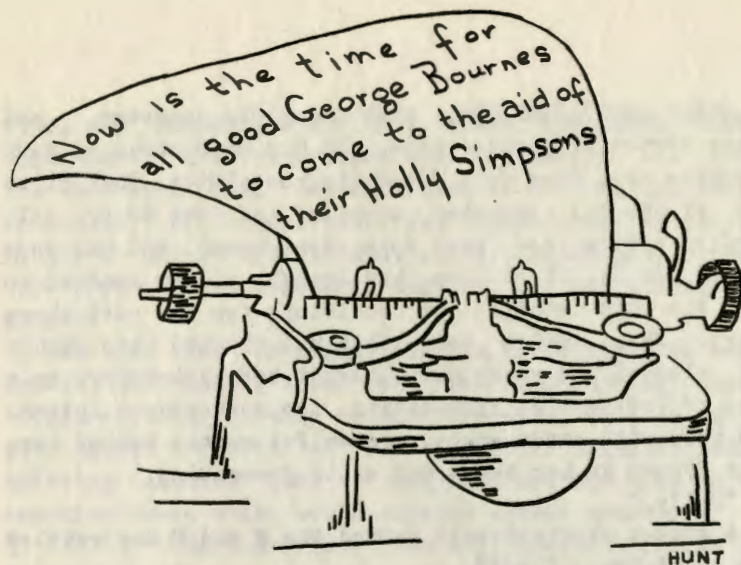 Now is the time for
all good George Bournes
to come to the aid of
their Holly Simpsons
HUNT